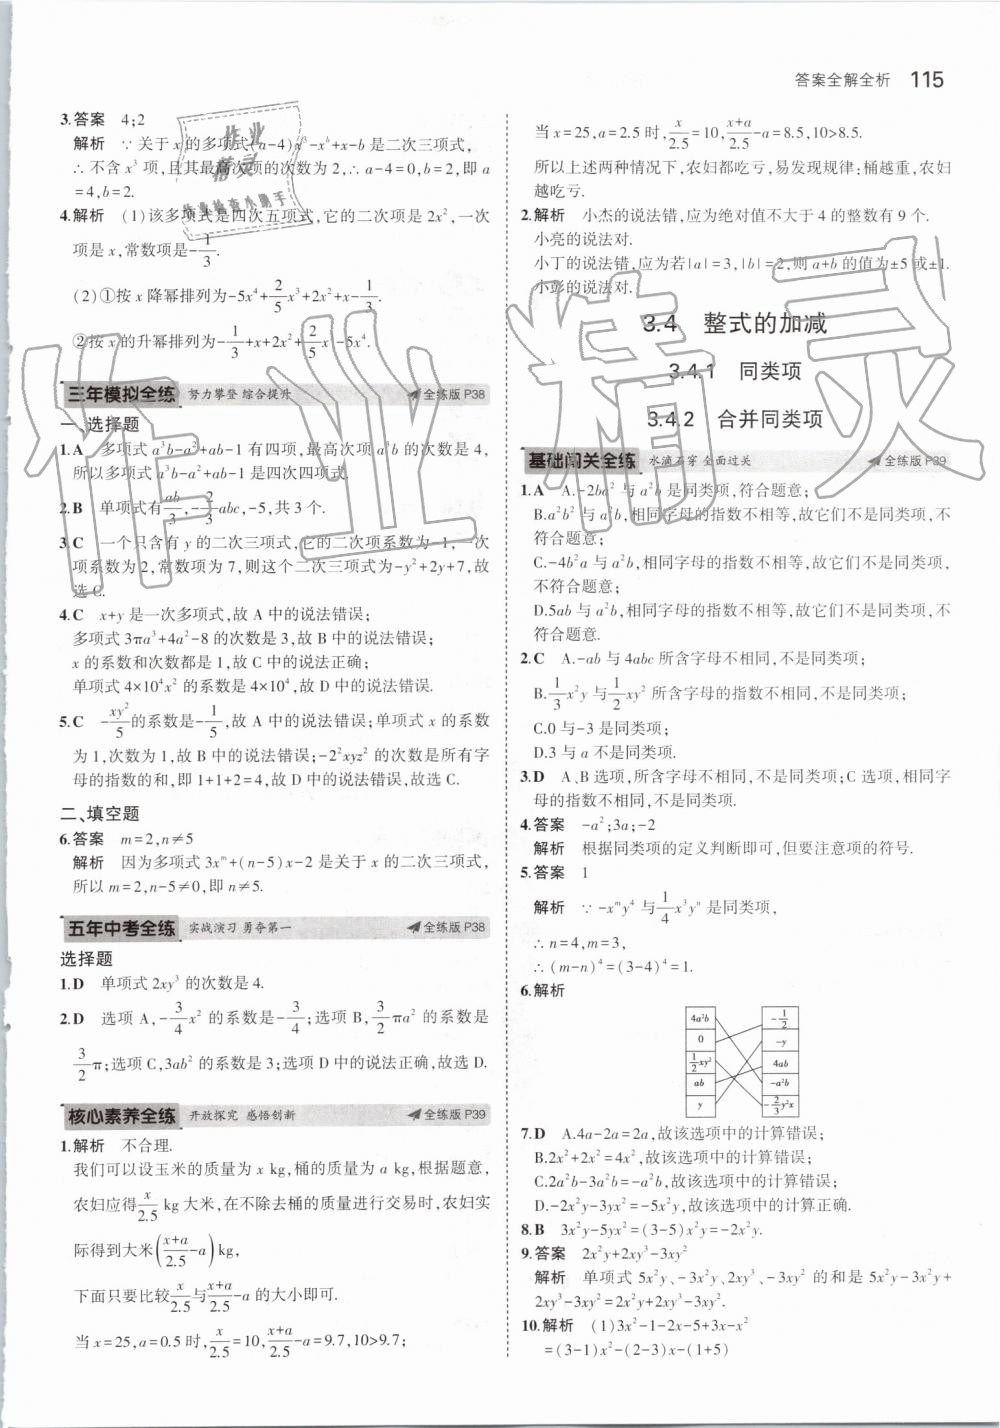 答案全解全析 115
3.答案 4;2
解析 ∵关于x的多项式(a-4)x³-xᵇ+x-b是二次三项式,
∴不含x³项,且其最高次项的次数为2,∴a-4=0,b=2,即a
=4,b=2.
4.解析 (1)该多项式是四次五项式,它的二次项是2x²,一次
项是x,常数项是-1/3.
(2)①按x降幂排列为-5x⁴+2/5x³+2x²+x-1/3.
②按x的升幂排列为-1/3+x+2x²+2/5x³-5x⁴.
三年模拟全练 努力攀登 综合提升 全练版P38
一、选择题
1.A 多项式a³b-a²+ab-1有四项,最高次项a³b的次数是4,
所以多项式a³b-a²+ab-1是四次四项式.
2.B 单项式有ab/3,-2/3abc,-5,共3个.
3.C 一个只含有y的二次三项式,它的二次项系数为-1,一次
项系数为2,常数项为7,则这个二次三项式为-y²+2y+7,故
选C.
4.C x+y是一次多项式,故A中的说法错误;
多项式3πa³+4a²-8的次数是3,故B中的说法错误;
x的系数和次数都是1,故C中的说法正确;
单项式4×10⁴x²的系数是4×10⁴,故D中的说法错误.
5.C -xy²/5的系数是-1/5,故A中的说法错误;单项式x的系数
为1,次数为1,故B中的说法错误;-2²xyz²的次数是所有字
母的指数的和,即1+1+2=4,故D中的说法错误,故选C.
二、填空题
6.答案 m=2,n≠5
解析 因为多项式3xᵐ+(n-5)x-2是关于x的二次三项式,
所以m=2,n-5≠0,即n≠5.
五年中考全练 实战演习 勇夺第一 全练版P38
选择题
1.D 单项式2xy³的次数是4.
2.D 选项A,-3/4x²的系数是-3/4;选项B,3/2πa²的系数是
3/2π;选项C,3ab²的系数是3;选项D中的说法正确,故选D.
核心素养全练 开放探究 感悟创新 全练版P39
1.解析 不合理.
我们可以设玉米的质量为x kg,桶的质量为a kg,根据题意,
农妇应得x/2.5 kg大米,在不除去桶的质量进行交易时,农妇实
际得到大米((x+a)/2.5-a)kg,
下面只要比较x/2.5与(x+a)/2.5-a的大小即可.
当x=25,a=0.5时,x/2.5=10,(x+a)/2.5-a=9.7,10>9.7;
当x=25,a=2.5时,x/2.5=10,(x+a)/2.5-a=8.5,10>8.5.
所以上述两种情况下,农妇都吃亏,易发现规律:桶越重,农妇
越吃亏.
2.解析 小杰的说法错,应为绝对值不大于4的整数有9个.
小亮的说法对.
小丁的说法错,应为若|a|=3,|b|=2,则a+b的值为±5或±1.
小彭的说法对.
3.4 整式的加减
3.4.1 同类项
3.4.2 合并同类项
基础闯关全练 水滴石穿 全面过关 全练版P39
1.A A.-2ba²与a²b是同类项,符合题意;
B.a²b²与a²b,相同字母的指数不相等,故它们不是同类项,不
符合题意;
C.-4b²a与a²b,相同字母的指数不相等,故它们不是同类项,
不符合题意;
D.5ab与a²b,相同字母的指数不相等,故它们不是同类项,不
符合题意.
2.C A.-ab与4abc所含字母不相同,不是同类项;
B.1/3x²y与1/2xy²所含字母的指数不相同,不是同类项;
C.0与-3是同类项;
D.3与a不是同类项.
3.D A、B选项,所含字母不相同,不是同类项;C选项,相同字
母的指数不相同,不是同类项.
4.答案 -a²;3a;-2
解析 根据同类项的定义判断即可,但要注意项的符号.
5.答案 1
解析 ∵-xᵐy⁴与1/4x³yⁿ是同类项,
∴n=4,m=3,
∴(m-n)⁴=(3-4)⁴=1.
6.解析
4a²b -1/2
0 -y
1/2xy² 4ab
ab -a²b
y -2/3y²x
7.D A.4a-2a=2a,故该选项中的计算错误;
B.2x²+2x²=4x²,故该选项中的计算错误;
C.2a²b-3a²b=-a²b,故该选项中的计算错误;
D.-2x²y-3yx²=-5x²y,故该选项中的计算正确.
8.B 3x²y-5yx²=(3-5)x²y=-2x²y.
9.答案 2x²y+2xy³-3xy²
解析 单项式5x²y、-3x²y、2xy³、-3xy²的和是5x²y-3x²y+
2xy³-3xy²=2x²y+2xy³-3xy².
10.解析 (1)3x²-1-2x-5+3x-x²
=(3-1)x²-(2-3)x-(1+5)
作业精灵
作业检查小助手
作业精灵